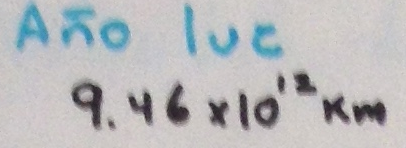 Año luz
9.46 x10¹² Km